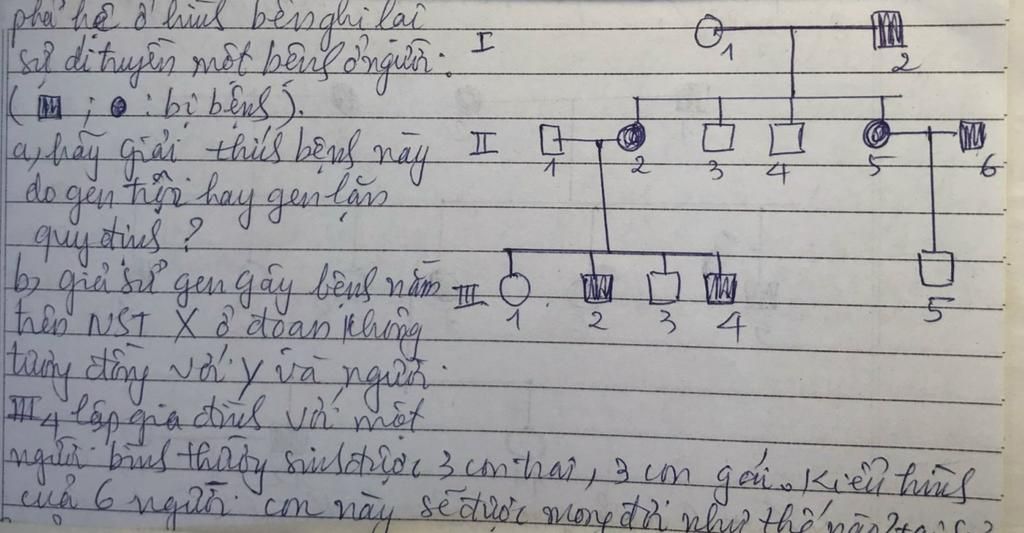 phả hệ ở hình bên ghi lại
sự di truyền một bệnh ở người.
( ; : bị bệnh).
a, hãy giải thích bệnh này
do gen trội hay gen lặn
quy định ?
b, giả sử gen gây bệnh nằm
trên NST X ở đoạn không
tương đồng với Y và người
III4 lập gia đình với một
người bình thường sinh được 3 con trai, 3 con gái. Kiểu hình
của 6 người con này sẽ được mong đợi như thế nào? tại sao?
I
1
2
II
1
2
3
4
5
6
III
1
2
3
4
5